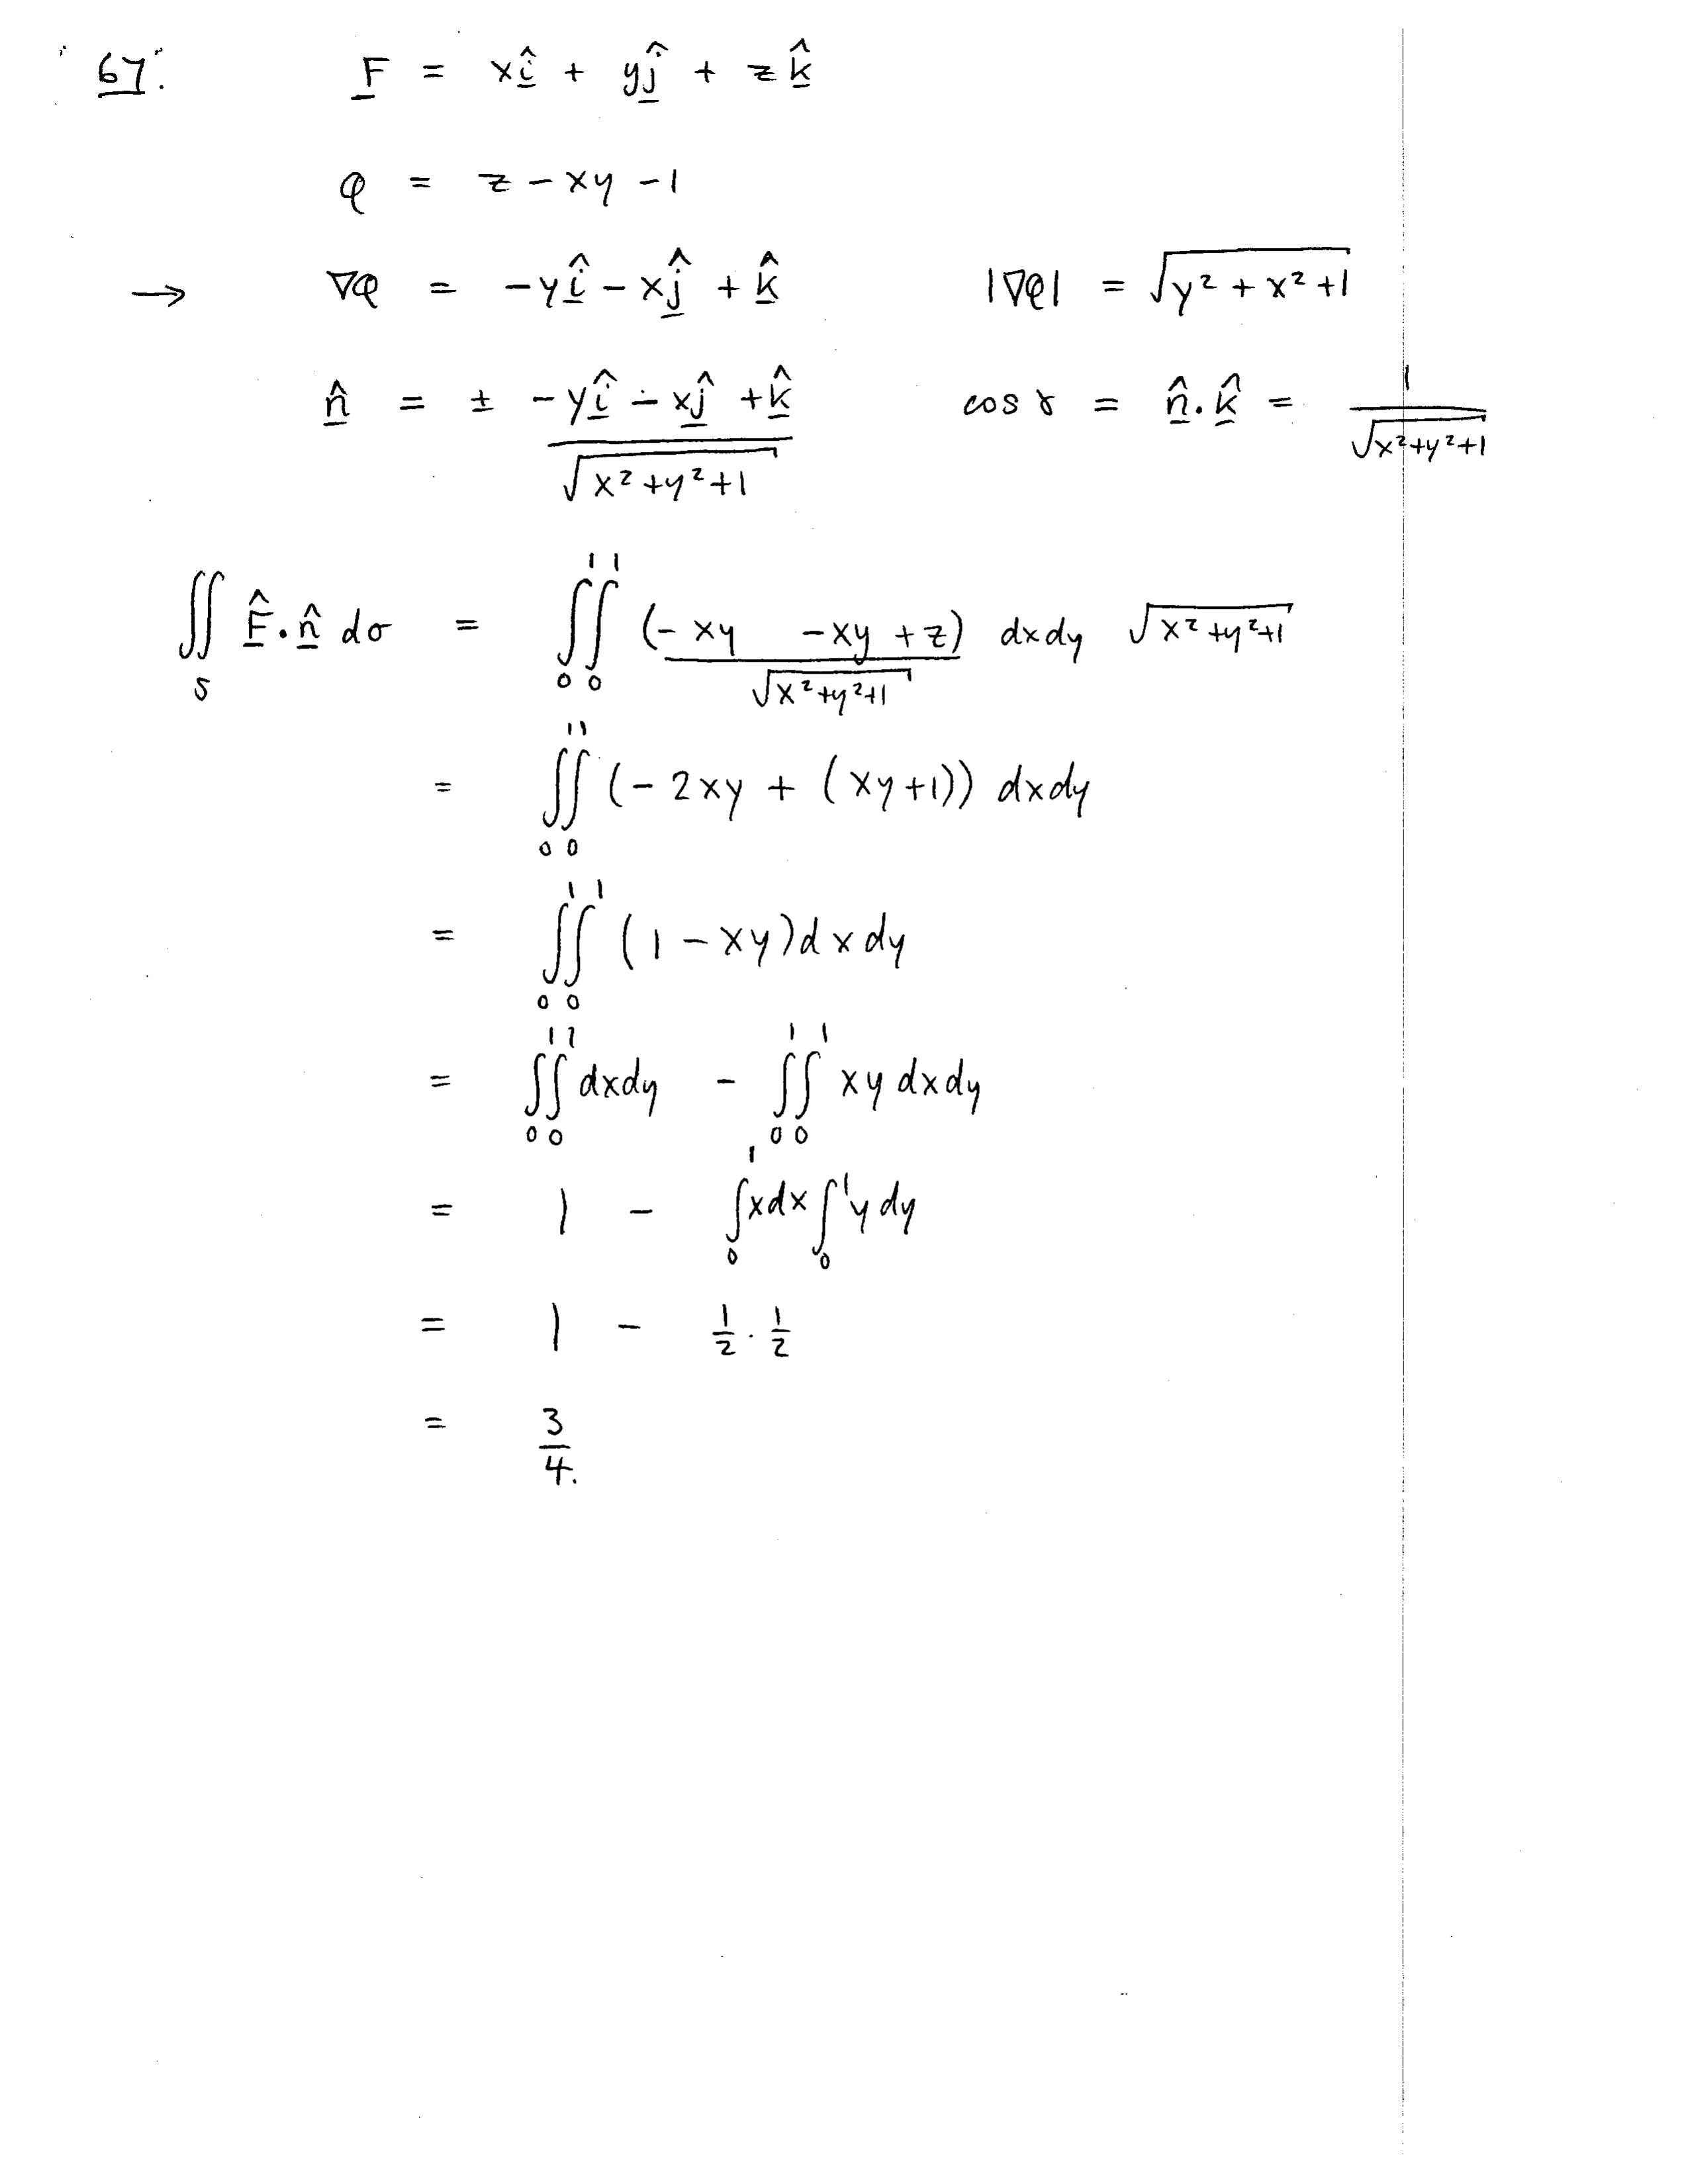 67. F = xî + yĵ + zk̂
φ = z - xy - 1
→ ∇φ = -yî - xĵ + k̂ |∇φ| = √(y² + x² + 1)
n̂ = ± (-yî - xĵ + k̂)/√(x² + y² + 1) cos γ = n̂ . k̂ = 1/√(x² + y² + 1)
∬_S F̂ . n̂ dσ = ∫₀¹∫₀¹ (-xy - xy + z)/√(x² + y² + 1) dxdy √(x² + y² + 1)
= ∫₀¹∫₀¹ (-2xy + (xy + 1)) dxdy
= ∫₀¹∫₀¹ (1 - xy) dxdy
= ∫₀¹∫₀¹ dxdy - ∫₀¹∫₀¹ xy dxdy
= 1 - ∫₀¹ xdx ∫₀¹ y dy
= 1 - 1/2 . 1/2
= 3/4.